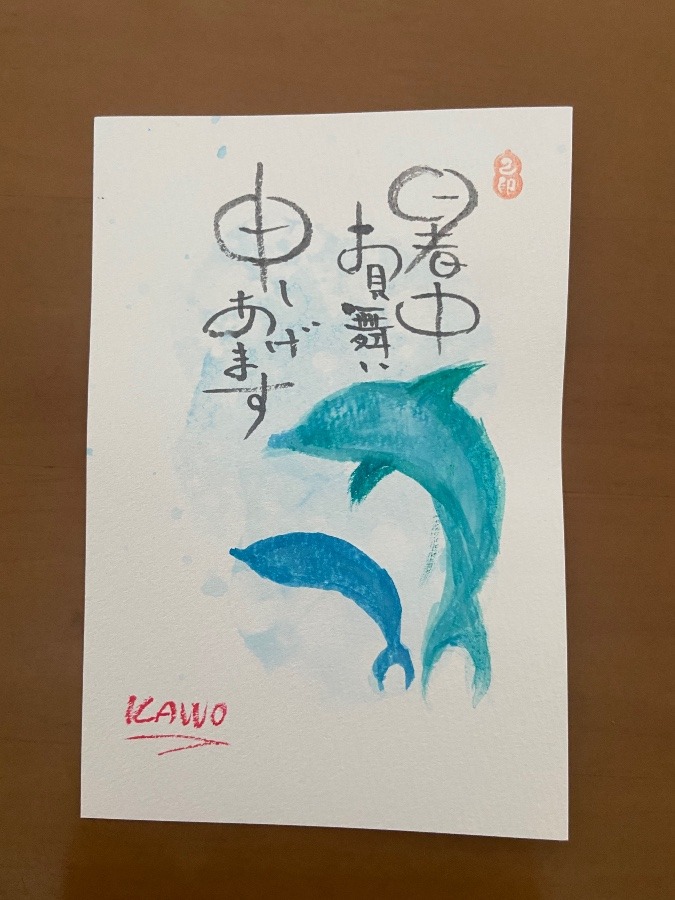 暑中
お見舞い
申しあげます
KAWO